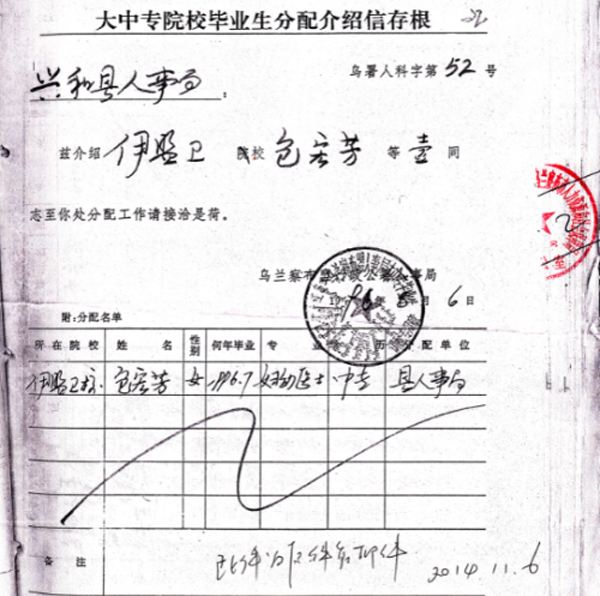 大中专院校毕业生分配介绍信存根 22
乌署人科字第52号
兴和县人事局：
兹介绍伊盟卫院校包宏芳等壹同
志至你处分配工作请接洽是荷。
乌兰察布 公 事局
1996年8月6日
附:分配名单
所在院校 姓名 性别 何年毕业 专业 历 分配单位
伊盟卫校 包宏芳 女 1996.7 妇幼医士 中专 县人事局
备注
2014.11.6